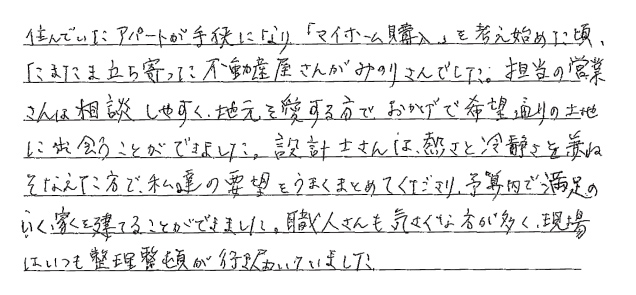 住んでいたアパートが手狭になり「マイホーム購入」を考え始めた頃、
たまたま立ち寄った不動産屋さんがみのりさんでした。担当の営業
さんは相談しやすく、地元を愛する方で、おかげで希望通りの土地
に出会うことができました。設計士さんは、熱さと冷静さを兼ね
そなえた方で、私達の要望をうまくまとめてくださり、予算内で満足の
いく家を建てることができました。職人さんも気さくな方が多く、現場
はいつも整理整頓が行き届いていました。